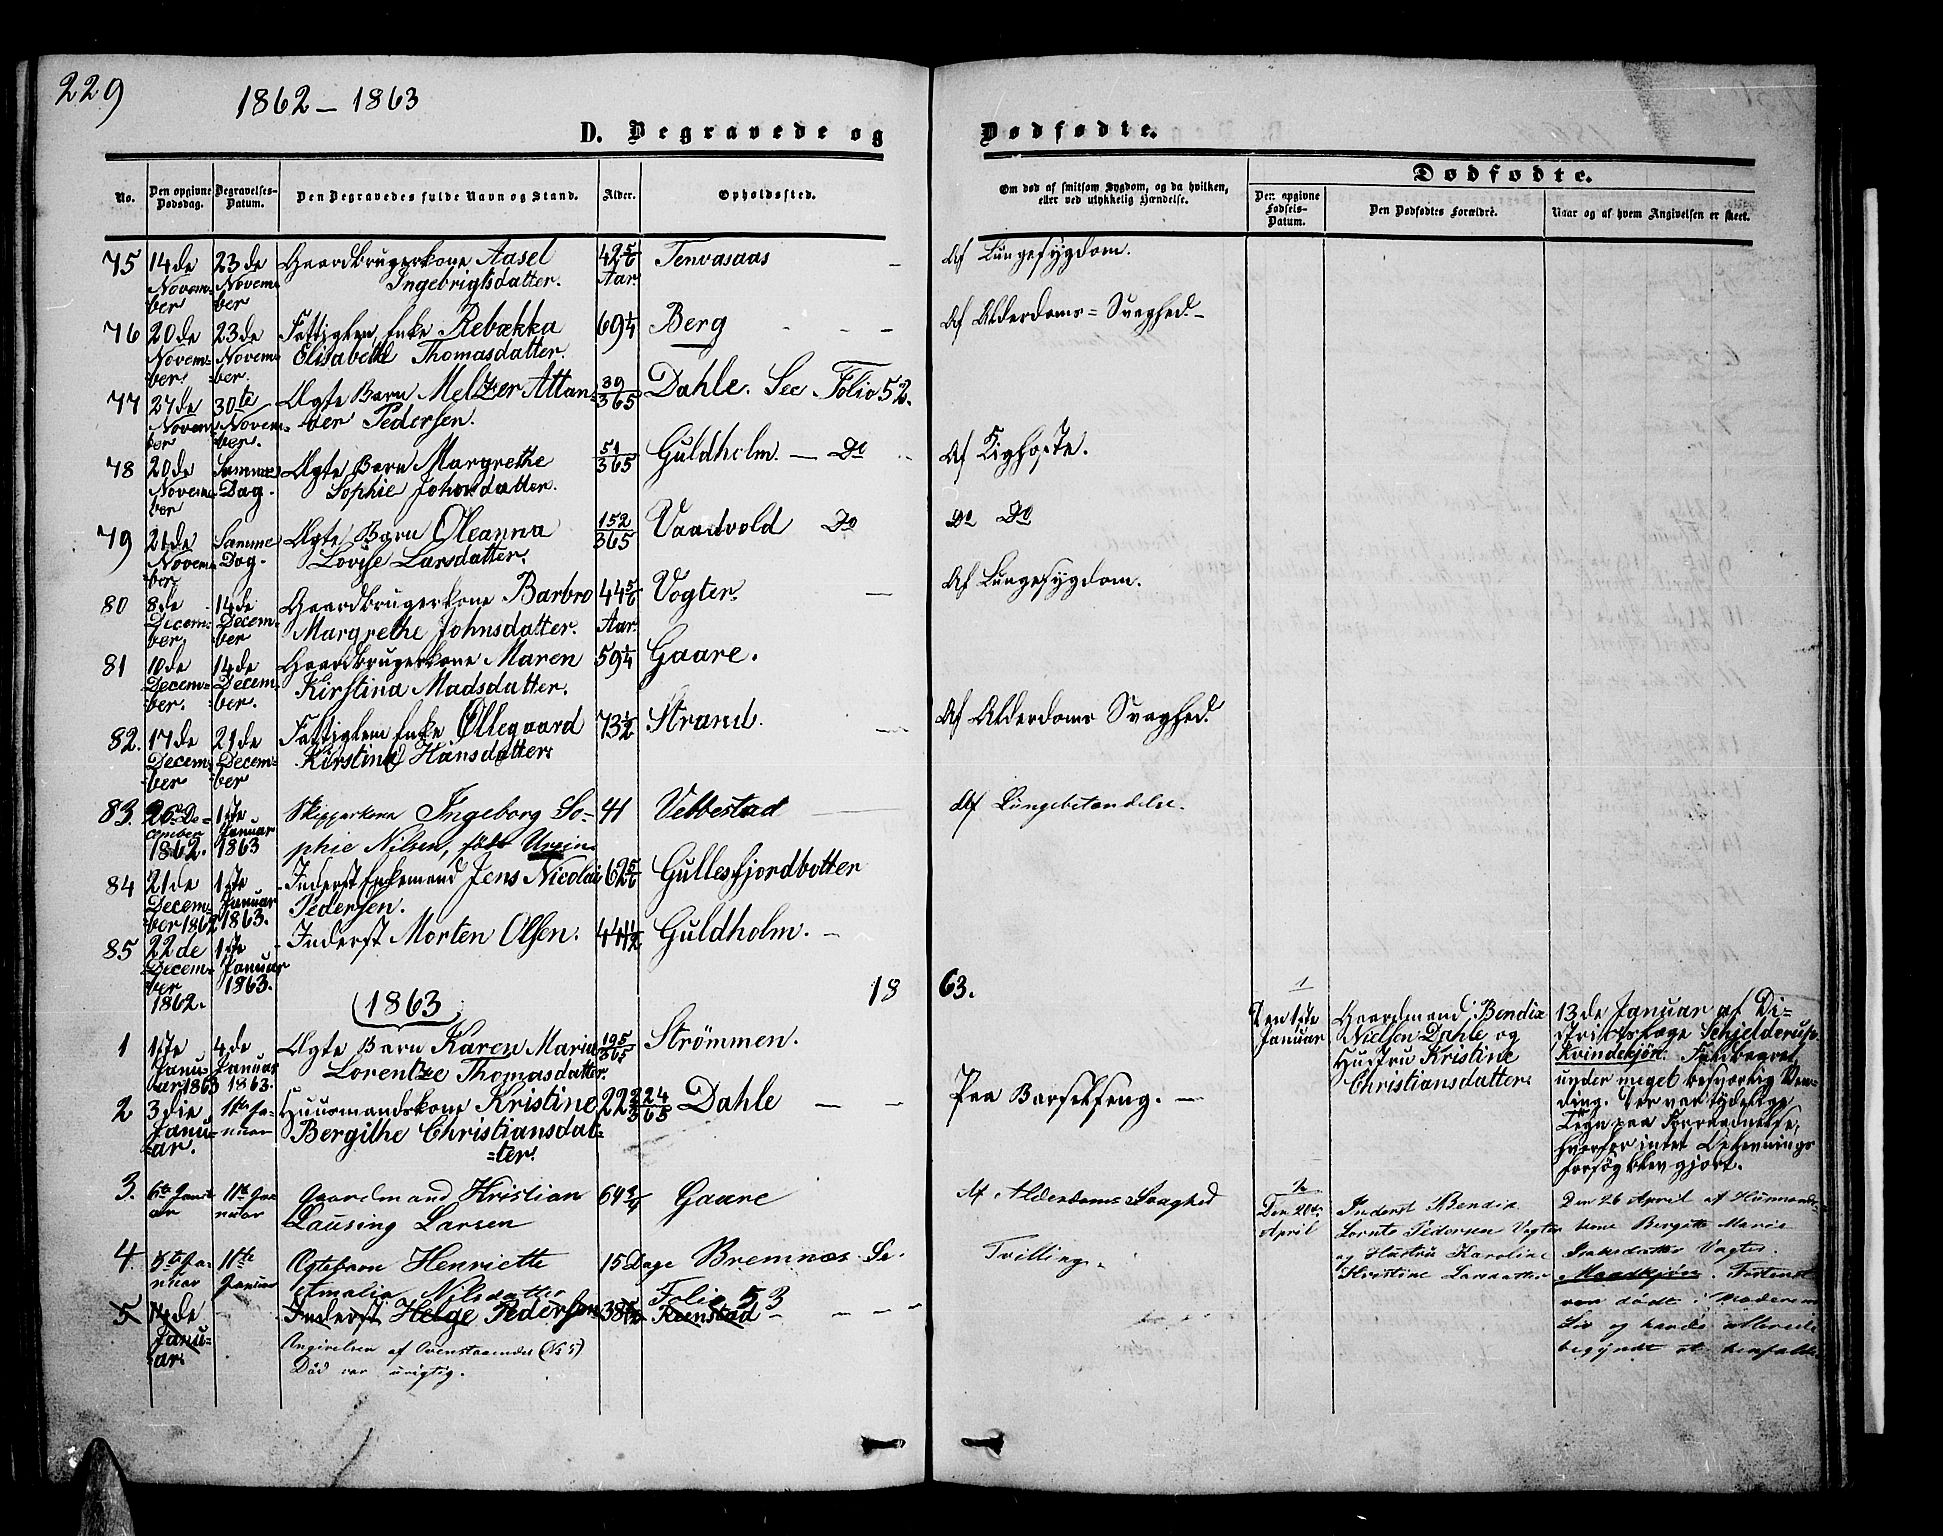 229
1862 – 1863
D. Begravede og Dødfødte.
No.
Den opgivne Dødsdag.
Begravelses-Datum.
Den Begravedes fulde Navn og Stand.
Alder.
Opholdssted.
Om død af smitsom Sygdom, og da hvilken, eller ved ulykkelig Hændelse.
Dødfødte.
Den opgivne Fødsels-Datum.
Den Dødfødtes Forældre.
Naar og af hvem Angivelsen er skeet.
75 14de November 23de November Gaardbrugerkone Aasel 42 5/6 Aar Tenvasaas – Af Lungesygdom.
Ingebrigtsdatter.
76 20de November 23de November Fattiglem, Enke Rebækka 69 1/4 Berg – – – Af Alderdoms=Svaghed –
Elisabeth Thomasdatter.
77 27de November 30te November. Ægte Barn Melzer Attan= 39/365 Dahle. See Folio 52.
ber Pedersen.
78 20de November Samme Dag. Ægte Barn Margrethe 51/365 Guldholm. – Do Af Kighoste.
Sophie Johnsdatter.
79 21de November Samme Dag. Ægte Barn Oleanna 152/365 Vaadvold Do Do Do
Lovise Larsdatter.
80 8de December 14de December Gaardbrugerkone Barbro 44 5/6 Aar. Vogter. – Af Lungesygdom.
Margrethe Johnsdatter.
81 10de December. 14de December. Gaardbrugerkone Maren 59 1/4 Gaare.
Kirstina Madsdatter.
82. 17de December 21de December Fattiglem Enke Ollegaard 73 1/2 Strand. Af Alderdoms Svaghed
Kirstina Hansdatter
83. 26de December 1862. 1ste Januar 1863 Skipperkone Ingeborg So= 41 Velbestad Af Lungebetændelse.
phie Nilsen, født
84 21de December 1862 1ste Januar 1863. Inderst Enkemand Jens Nicolai 62 5/6 Gullesfjordbotten
Pedersen.
85 22de December 1862. 1ste Januar 1863. Inderst Morten Olsen. 44 1/2 Guldholm. –
1863
18 63.
1 1ste Januar 1863 4de Januar 1863. Ægte Barn Karen Marie 195/365 Strømmen.
Lorentze Thomasdatter.
2 3die Januar. 11te Januar Huusmandskone Kristine 22 Dahle – – Paa Barselseng. –
Bergithe Christiansdat=
=ter.
3. 6te Januar 11te Januar Gaardmand Kristian 64 3/4 Gaare Af Alderdoms Svaghed
Lausing Larsen
4 11te Januar Ægtebarn Henriette 15 Dage Bremnæs Se. Tvilling.
Amalia Nilsdatter Folio 53
5 14de Januar Inderst Helge Pedersen 38 Reenstad – – –
Angivelsen af Ovenstaaendes (No 5)
Død var urigtig.
1
Den 1ste Januar
Gaardmand Bendix
Nielsen Dahle og
Hustru Kristine
Christiansdatter
13de Januar af Di=
striktslæge Schjelderup.
Kvindekjøn. Fuldbaaret
under meget besværlig Den=
ding. Der var tydelige
Tegn paa Forraadnelse,
hvorfor intet Oplivnings
forsøg blev gjort.
2
Den 20de April
Inderst Bendix
Lornts Pedersen Vogter
og Hustru Karoline
Kristine Larsdatter
Den 26 April af Huusmands
kone Bergitte Marie
Vogter.
Mandkjøn. Fosteret
var dødt i Moderens
Liv og havde allerede
begyndt at henfalde